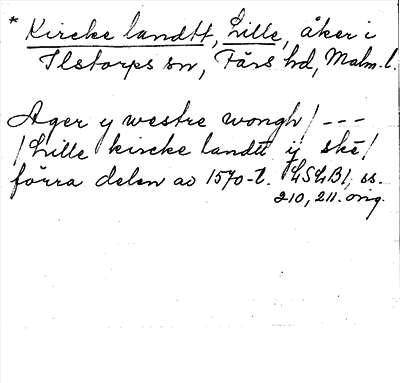 * Kircke landtt, Lille, åker i
Ilstorps sn, Färs hd, Malm. l.
Ager y westre wongh / ---
/ Lille kircke landtt ij skē /
förra delen av 1570-t. LSLB 1, ss.
210, 211. orig.